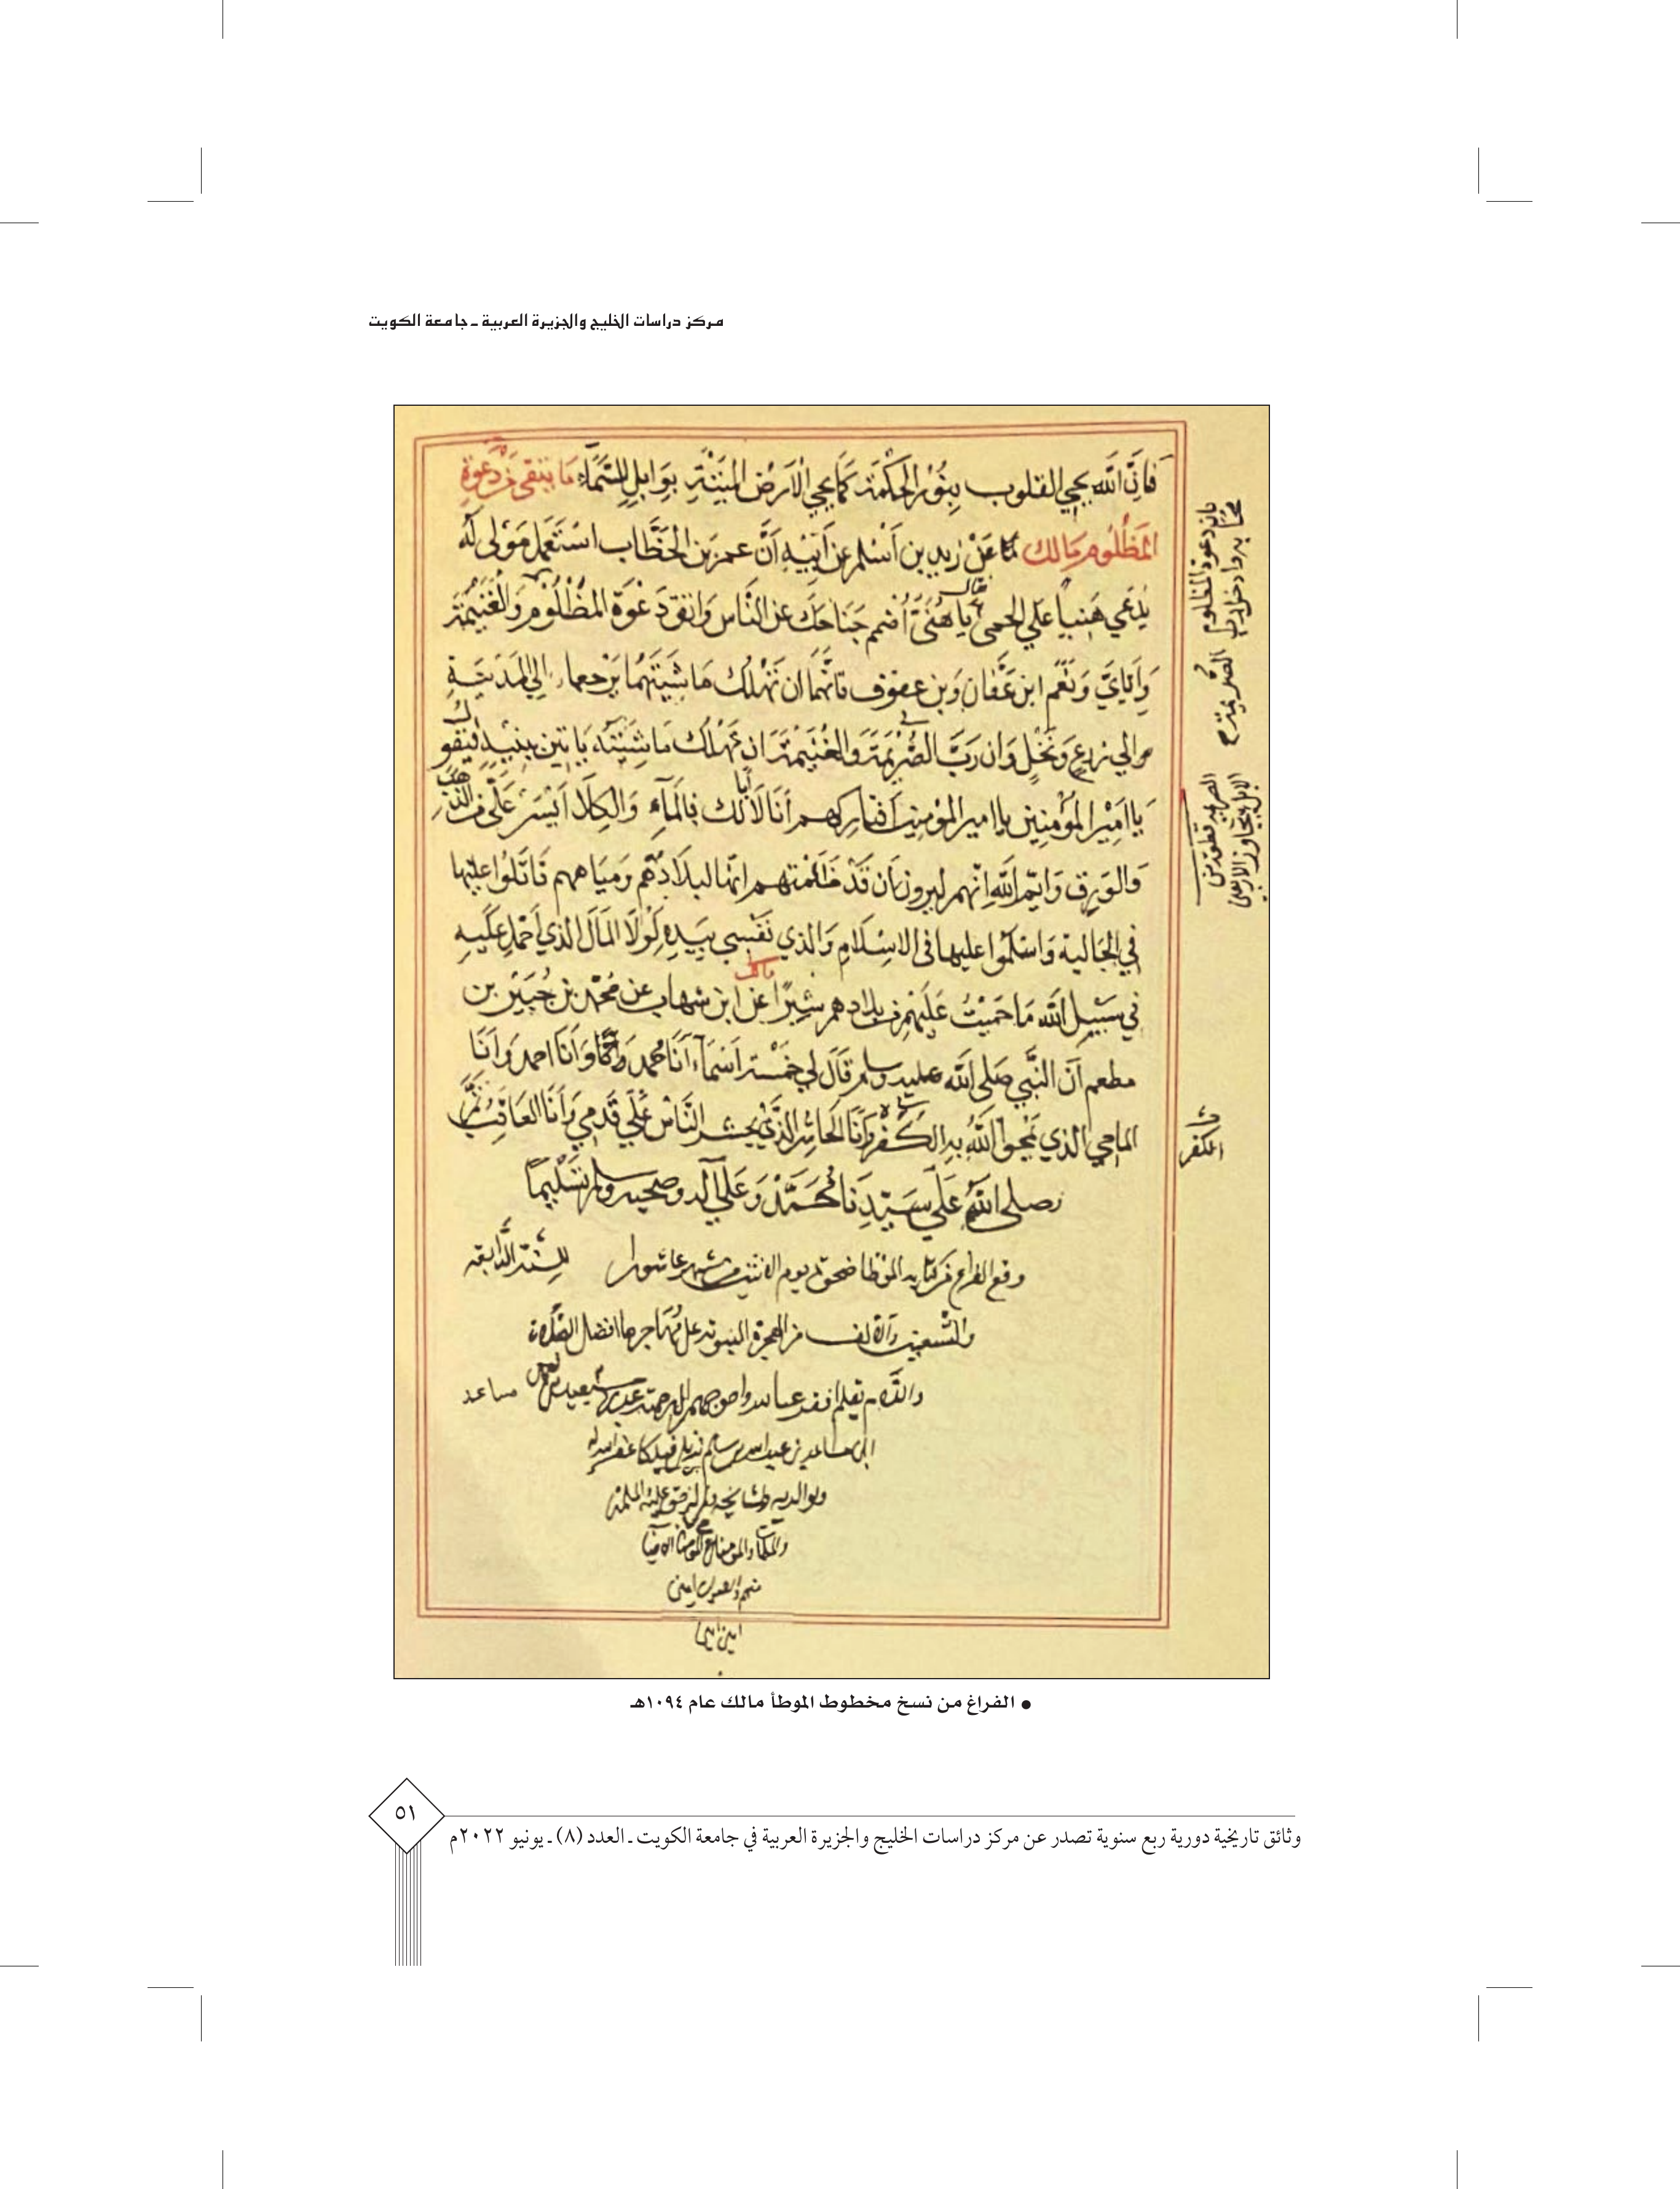 مركز دراسات الخليج والجزيرة العربية ـ جامعة الكويت
فَاِنَّ اللّه يحيي القلوب بِنُوْر الحِكْمَة كَمَا يحيي الْاَرْضَ المَيْتَةِ بِوَابِلِ السَّمَاءِ مَا يتقى مِنْ دَعوَةِ
المَظْلُوم مَالك عَنْ زَيد بن اَسْلم عن اَبِيْهِ اَنَّ عمر بَن الخَطَّاب استَعْمَل مَوْلى لَه
يُدْعَى هَنيا عَلي الحمى قال يَا هُنَيّ اُضمم جَنَاحَكَ عَن النَّاس وَاتقِ دَعْوَةَ المَظْلُوْم وَالْغُنَيْمَة
وَاِيَّايَ وَنَعَم ابن عَفَّان وَبن عوف فانَّهما ان تَهْلك مَاشِيَتهُمَا يَرْجعا اِلى المَدَيَنةِ
والي زرعٍ وَنَخْلٍ وَان رَبَّ الصُّرَيْمَة وَالغُنَيْمَة اَن تَهْلك مَاشِيَتَه يَاتِيْن بِبَنِيْهِ فيقو
يَا اَمِيْر المُؤْمِنِين يا امير المؤمنين افتاركهم اَنَا لَا اَبَا لَك فَالمَاءِ وَالكِلَا اَيْسَر عَلَيَّ من الذهب
وَالوَرِق وَايْم اللّهِ اِنَّهم ليرون اَن قَدْ ظَلَمْتهم انَّها لبلَادُهم وَمِيَاههم قَاتَلُوا عليها
في الجَاليه وَاسْلَمُوا عليها في الاسْلَامِ وَالذي نَفْسِي بِيَدِهِ لَوْلَا المَال الذي اَحْمل عَلَيهِ
في سَبِيْل اللّه مَا حَمَيْتُ عَلَيْهم من بلادهم شِبْرًا مالك عَن ابن شهاب عن مُحَمَّد بن جُبَيْر بن
مطعم اَن النَّبي صَلى اللّه عليه وسلم قَالَ لِي خَمْسَة اَسْمَاء اَنَا مُحمد وَاَنَا احمد وَاَنَا
الماحي الذي يَمْحوا اللّهُ بِهِ الكُفْر وَاَنَا الحَاشِر الذي يحشر النَّاسُ عَلَى قَدَمِي وَاَنَا العَاقِبُ
وصلى اللّه عَلَى سَيّدِنَا مُحَمَّدٍ وَعَلَى آله وصحبه وسلم تَسْلِيْمًا
وقع الفراغ من كتابه الموطا ضحوة يوم الاثنين من شهر عاشورا للسنة الرابعة
والتسعين والالف من الهجرة النبويه على مهاجرها افضل الصلاة
والسلام بقلم افقر عباد الله واحوجهم الى رحمته سعيد مساعد
ابن مساعد بن عبد الله بن سالم نزيل فيلكا غفر الله له
ولوالديه ولمشايخه
منهم والاموات امين
امين امين
بيان دعوة المظلوم
الكفر
● الفراغ من نسخ مخطوط الموطأ مالك عام ١٠٩٤هـ
٥١
وثائق تاريخية دورية ربع سنوية تصدر عن مركز دراسات الخليج والجزيرة العربية في جامعة الكويت ـ العدد (٨) ـ يونيو ٢٠٢٢م